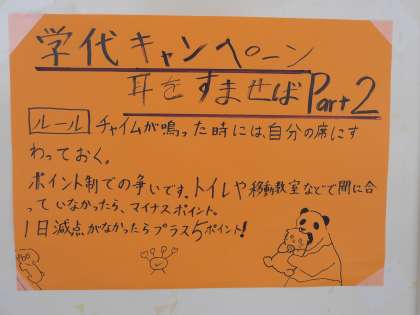 学代キャンペーン
耳をすませばPart2
ルール チャイムが鳴った時には、自分の席にす
わっておく。
ポイント制での争いです。トイレや移動教室などで間に合
っていなかったら、マイナスポイント。
1日減点がなかったらプラス5ポイント!